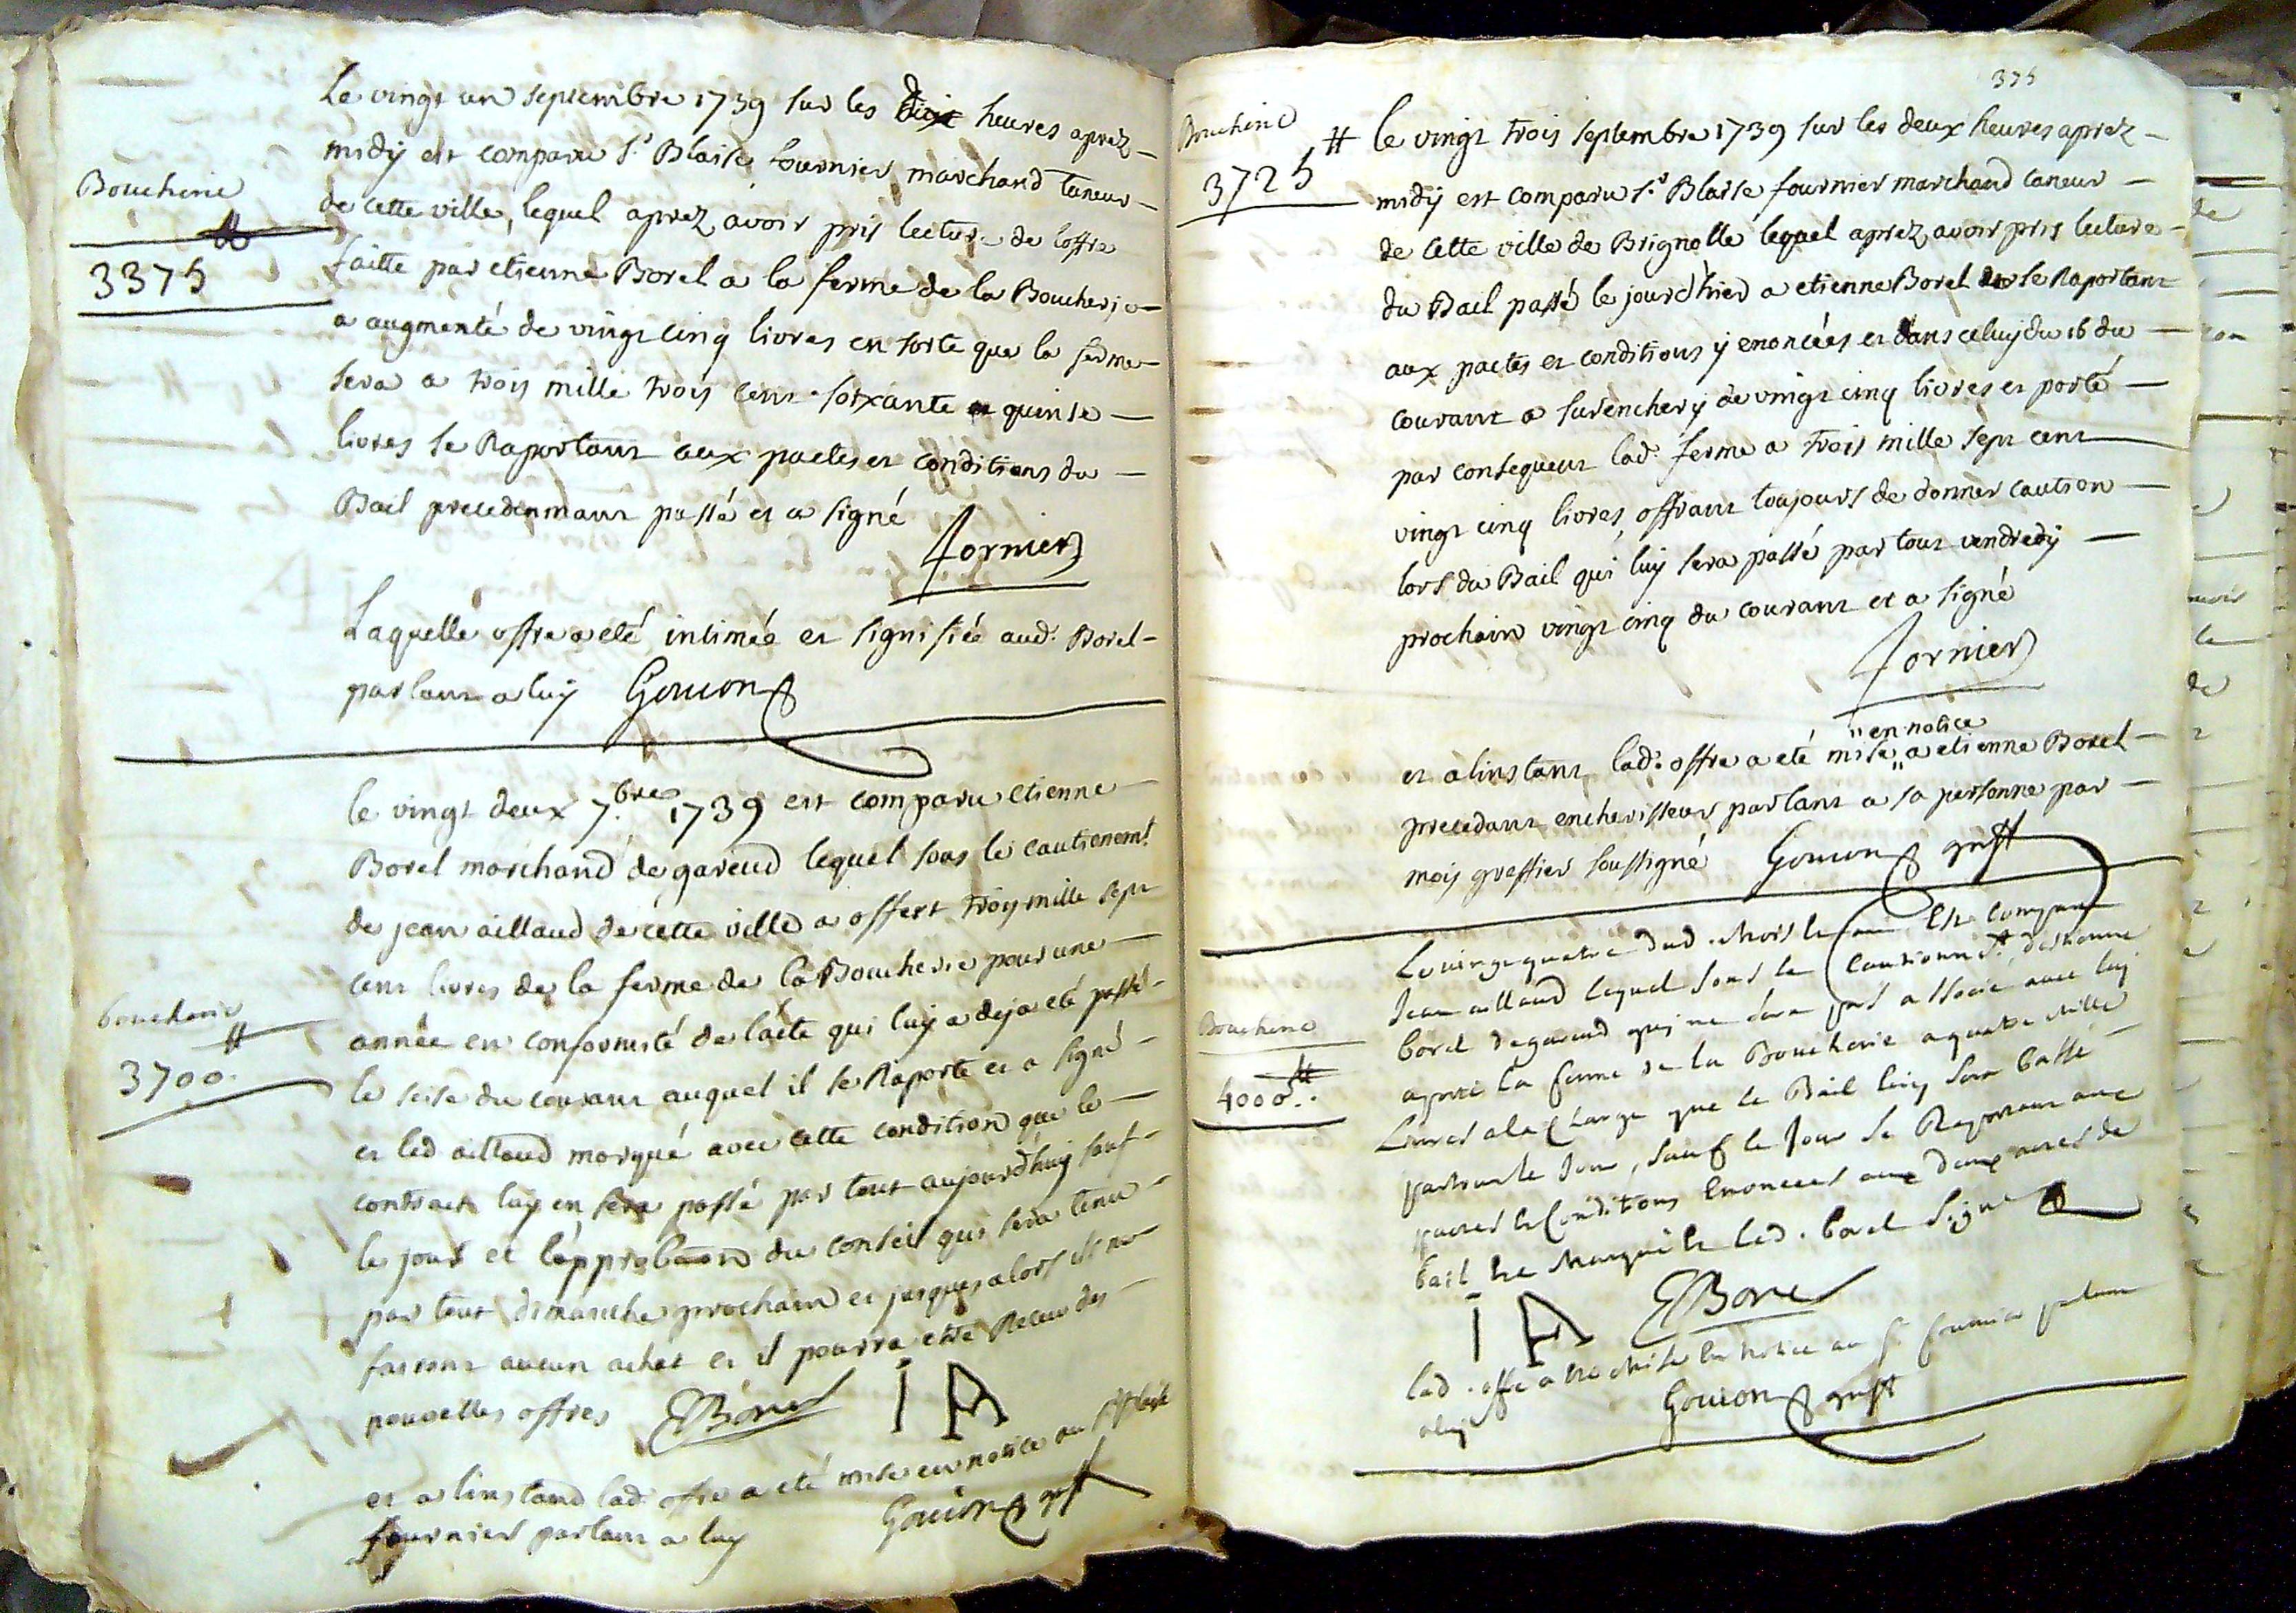 Le vingt un septembre 1739 sur les heures aprez
midÿ est comparu Sr. Blaise fournier marchand taneur
de cette ville, lequel aprez avoir pris lecture de loffre
faitte par etienne Borel a la ferme de la Boucherie
a augmenté de vingt cinq livres en sorte que la ferme
sera a trois mille trois cent soixante quinse
livres se Raportant aux pactes et conditions du
Bail precedenmant passé et a signé
Boucherie
3375
fornier
Laquelle offre a eté intimée et signifiée aud. Borel
parlant a luÿ Gouion
le vingt deux 7.bre 1739 est comparu etienne
Borel marchand de gareud lequel sous le cautionemt.
de jean aillaud de cette ville a offert trois mille sept
cent livres de la ferme de la Boucherie pour une
année en conformité de lacte qui luÿ a deja eté passé
le seise du courant auquel il se Raporte et a signé
et led aillaud marqué avec cette condition que le
contract luÿ en sera passé par tout aujourdhuÿ sauf
le jour et lapprobaon du conseil qui sera tenu
par tout dimanche prochain et jusques alors ils ne
fairont aucun achet et il pourra etre Receu des
nouvelles offres EBorel I A
boucherie
3700.
et a linstand lad. offre a eté mise en notice au Sr. blaise
fournier parlant a luy Gouion greff
375
Boucherie
3725
le vingt trois septembre 1739 sur les deux heures aprez
midÿ est comparu Sr. Blaise fournier marchand taneur
de cette ville de Brignolle lequel aprez avoir pris lecture
du Bail passé le jourdhier a etienne Borel se Raportant
aux pactes et conditions ÿ enoncées et dans celuÿ du 16 du
courant a surencherÿ de vingt cinq livres et porté
par consequent lad. ferme a trois mille sept cent
vingt cinq livres, offrant toujours de donner caution
lors du Bail qui luÿ sera passé par tout vendredÿ
prochain vingt cinq du courant et a signé
fornier
en notice
et a linstant lad. offre a eté mise a etienne Borel
precedant encherisseur parlant a sa personne par
moÿ greffier soussigné Gouion greff
Le vingt quatre dud. Mois est comparu
Jean aillaud lequel sous le Cautionnt. destienne
borel degareud qui ne sera pas associé avec luj
a porté la ferme de la Boucherie a quatre mille
Livres a la Charge que le Bail luy sera passé
partout le jour, sauf le Jour se Raportant aux
pactes et Conditions Enoncées aux deux actes de
bail et a Marqué et led. borel Signé
Boucherie
4000..
I A EBorel
lad. offre a été Mise en notice au Sr. fournier parlant
a luy Gouion greff